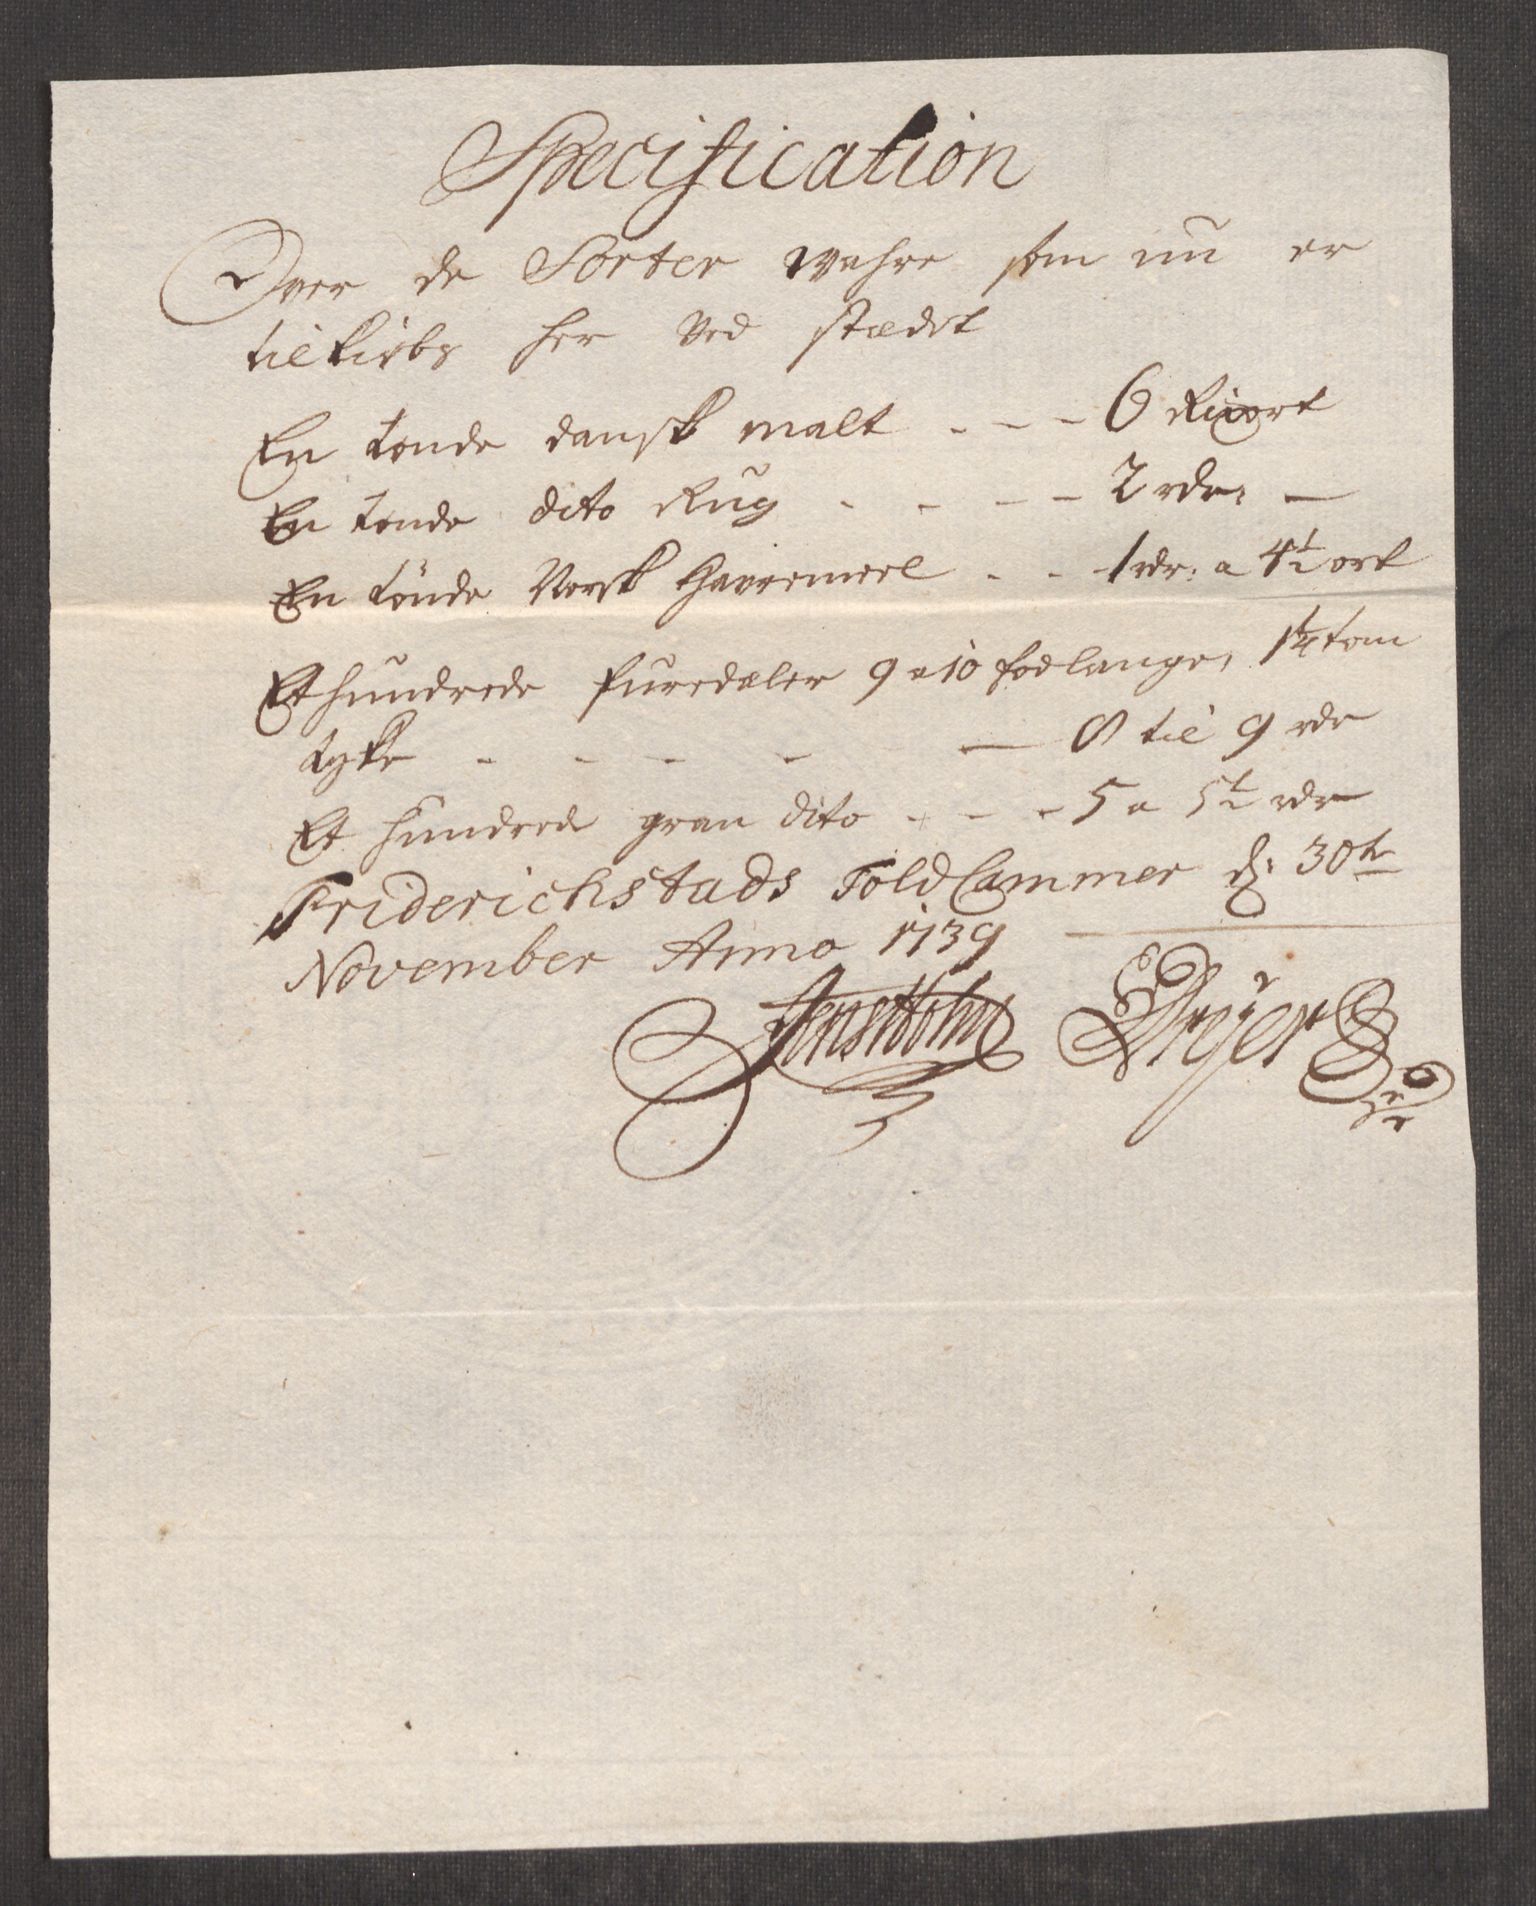 Specification
Over de Sorter wahre som nu er
til kiøbs her ved stædet
En tønde dansk malt - - - 6 Rixort
En tønde dito Rug - - - - 2 rdr: —
En tønde Norsk Havremeel - - 1 rdr: a 4½ ort
Et hundrede furedæler 9 a 10 fod lange, 1¼ tom
tyke - - - - — 8 til 9 rdr
Et hundrede gran dito - - - 5 a 5½ rdr
Friderichstads Told Cammer d: 30te
November Anno 1739
Jens Holm EDreyer